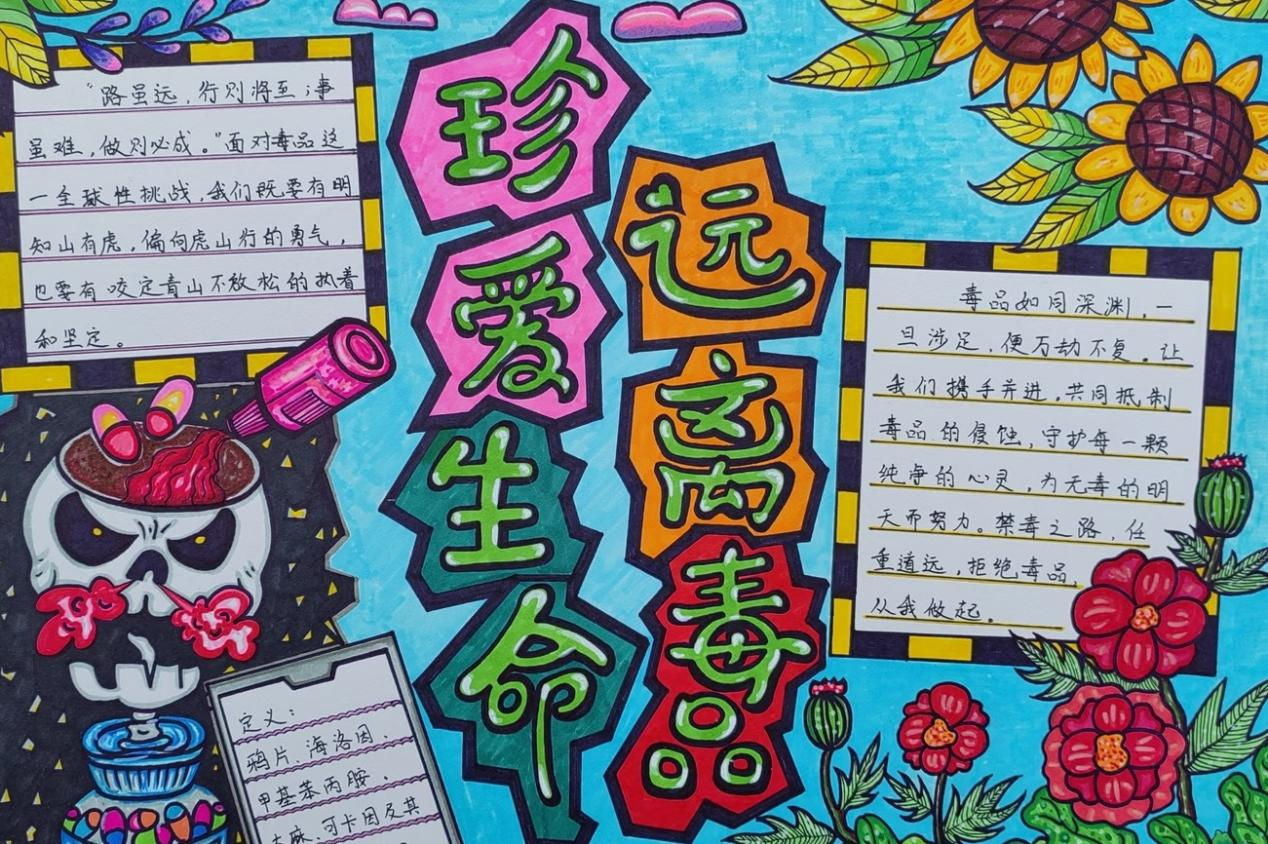 珍爱生命
远离毒品
"路虽远，行则将至；事
虽难，做则必成。"面对毒品这
一全球性挑战，我们既要有明
知山有虎，偏向虎山行的勇气，
也要有咬定青山不放松的执着
和坚定。
毒品如同深渊，一
旦涉足，便万劫不复。让
我们携手并进，共同抵制
毒品的侵蚀，守护每一颗
纯净的心灵，为无毒的明
天而努力。禁毒之路，任
重道远，拒绝毒品，
从我做起。
定义：
鸦片、海洛因、
甲基苯丙胺、
大麻、可卡因及其